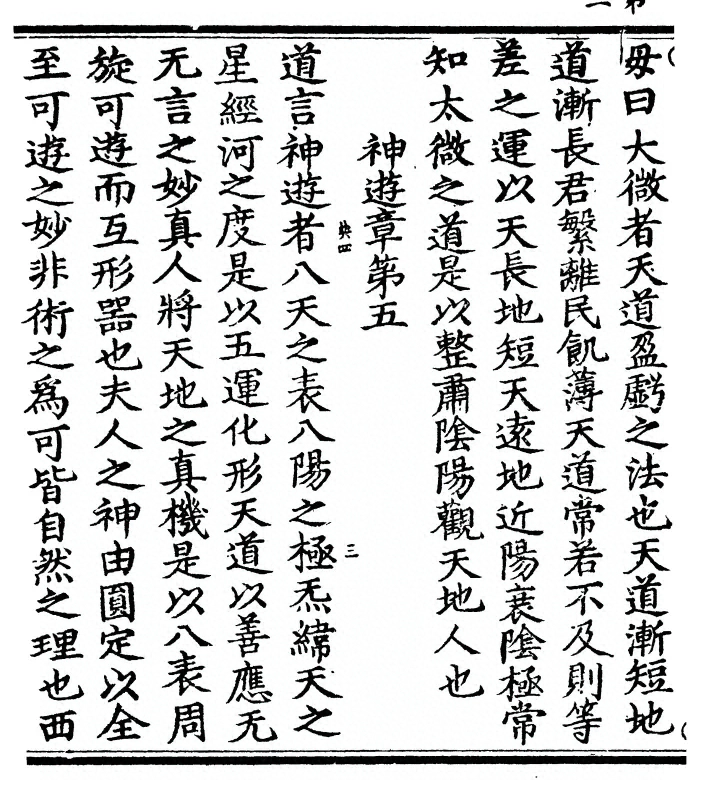 毋曰大微者天道盈虧之法也天道漸短地
道漸長君繫離民飢薄天道常若不及則等
差之運以天長地短天遠地近陽衰陰極常
知太微之道是以整肅陰陽觀天地人也
神遊章第五
典四
道言神遊者八天之表八陽之極炁緯天之
三
星經河之度是以五運化形天道以善應无
无言之妙真人將天地之真機是以八表周
旋可遊而互形器也夫人之神由圓定以全
至可遊之妙非術之為可皆自然之理也西